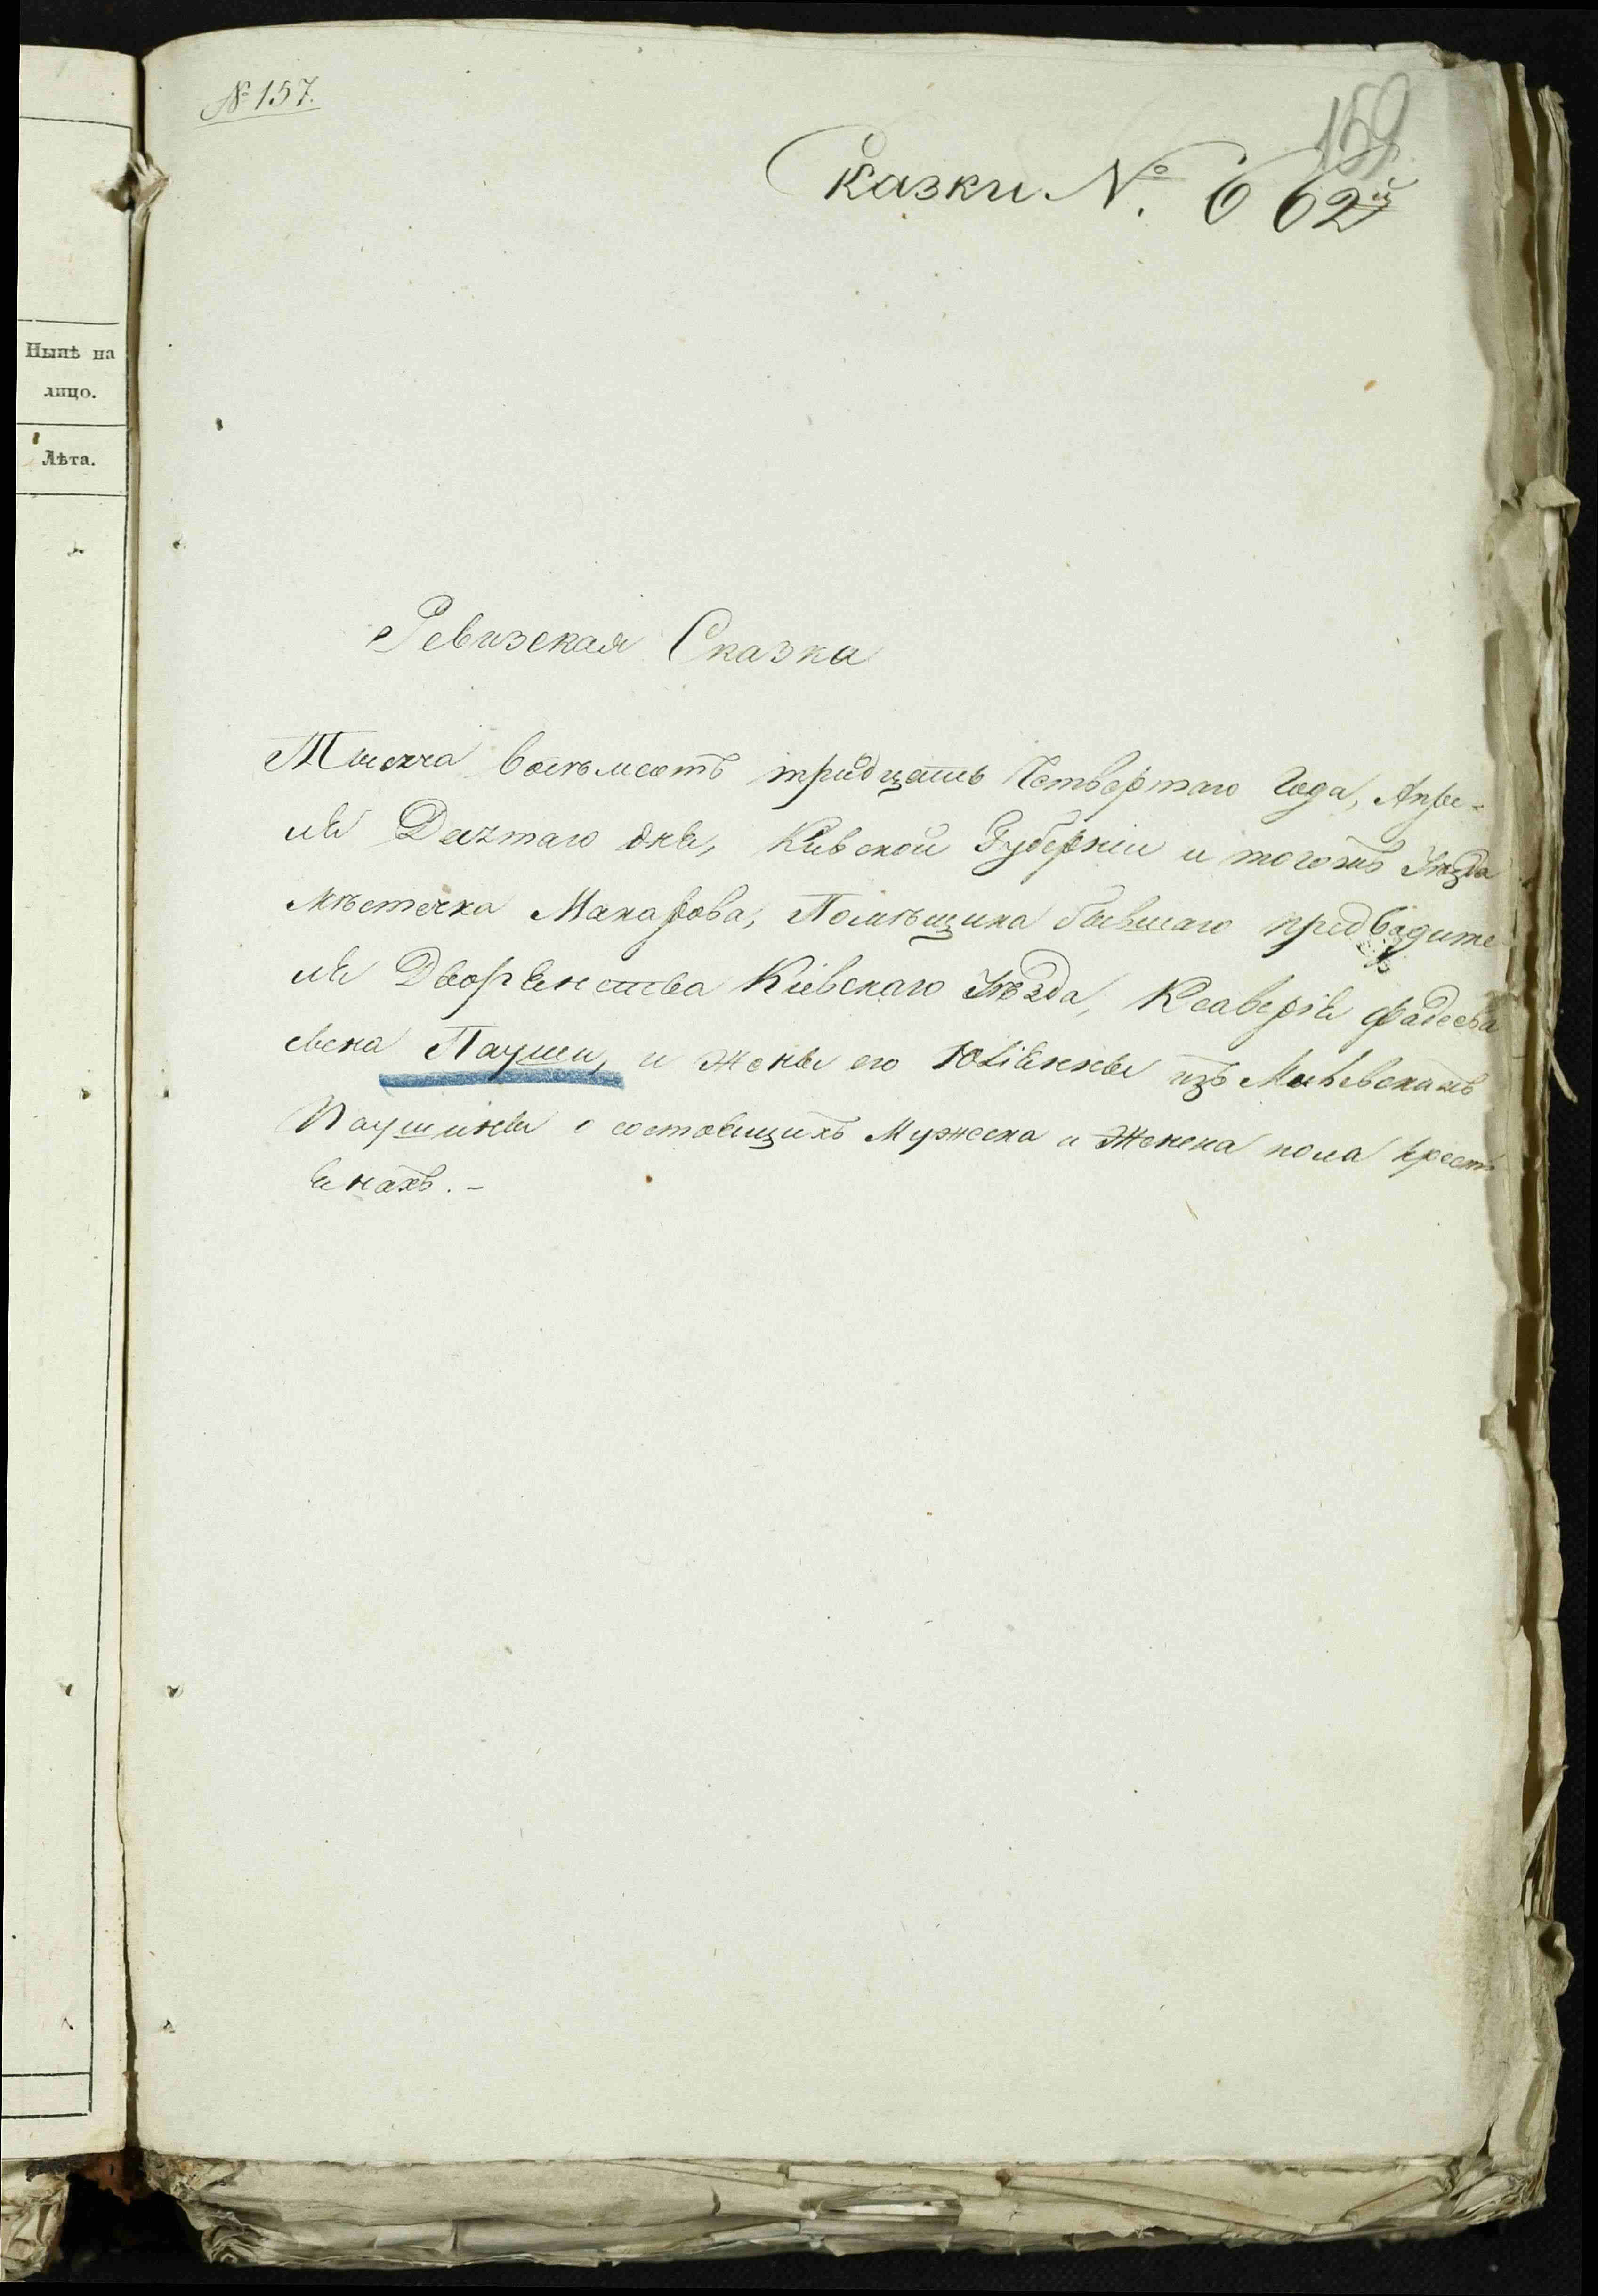 Нынѣ на
лицо.
Лѣта.
№ 157.
159
Сказки №. 662й
Ревизская Сказка
Тысяча восемьсотъ тридцать Четвертаго Года, Апре-
ля Десятаго дня, Киевской Губерніи и тогожъ Уезда
мѣстечка Макарова, Помѣщика бывшаго предводите
ля Дворянства Кіевскаго Уѣзда, Ксаверія Фадеева
сына Пауши, и Жены его Юліянны изъ
Паушины о состоящихъ Мужеска и Женска пола крестъ
янахъ. -